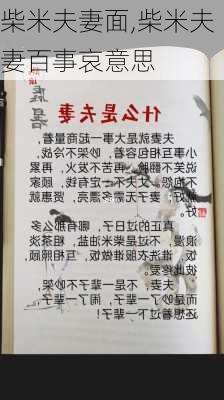 柴米夫妻面,柴米夫
妻百事哀意思
什么是夫妻
夫妻就是大事一起商量着,
小事互相包容着,吵架不冷战,
再苦不发火,再累
不抱怨。丈夫不一定有钱,顾家
就好;妻子无需多漂亮,贤惠就
好。
真正的过日子,哪有那么多
浪漫,不过是柴米油盐,粗茶淡
饭,谁洗衣服谁做饭,互相照顾,
彼此疼爱。
夫妻,不是一辈子不吵架,
而是吵了一辈子,闹了一辈子
还想着过下一辈子!